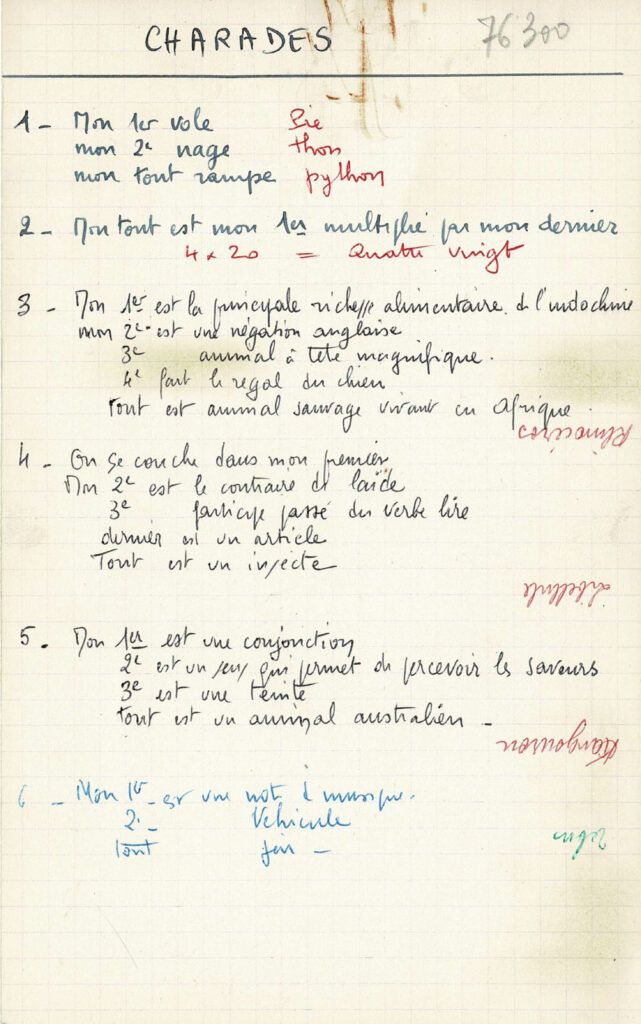 CHARADES
76300
1 - Mon 1er vole Pie
mon 2e nage thon
mon tout rampe python
2 - Mon tout est mon 1er multiplié par mon dernier
4 x 20 = Quatre vingt
3 - Mon 1er est la principale richesse alimentaire de l'indochine
mon 2e est une négation anglaise
3e animal à tête magnifique.
4e fait le régal du chien
tout est animal sauvage vivant en Afrique
Rhinocéros
4 - On se couche dans mon premier
Mon 2e est le contraire de laide
3e participe passé du verbe lire
dernier est un article
Tout est un insecte
Libellule
5. Mon 1er est une conjonction
2e est un sens qui permet de percevoir les saveurs
3e est une teinte
tout est un animal australien -
Kangourou
6 - Mon 1er est une note d musique.
2. - Véhicule
tout fin -